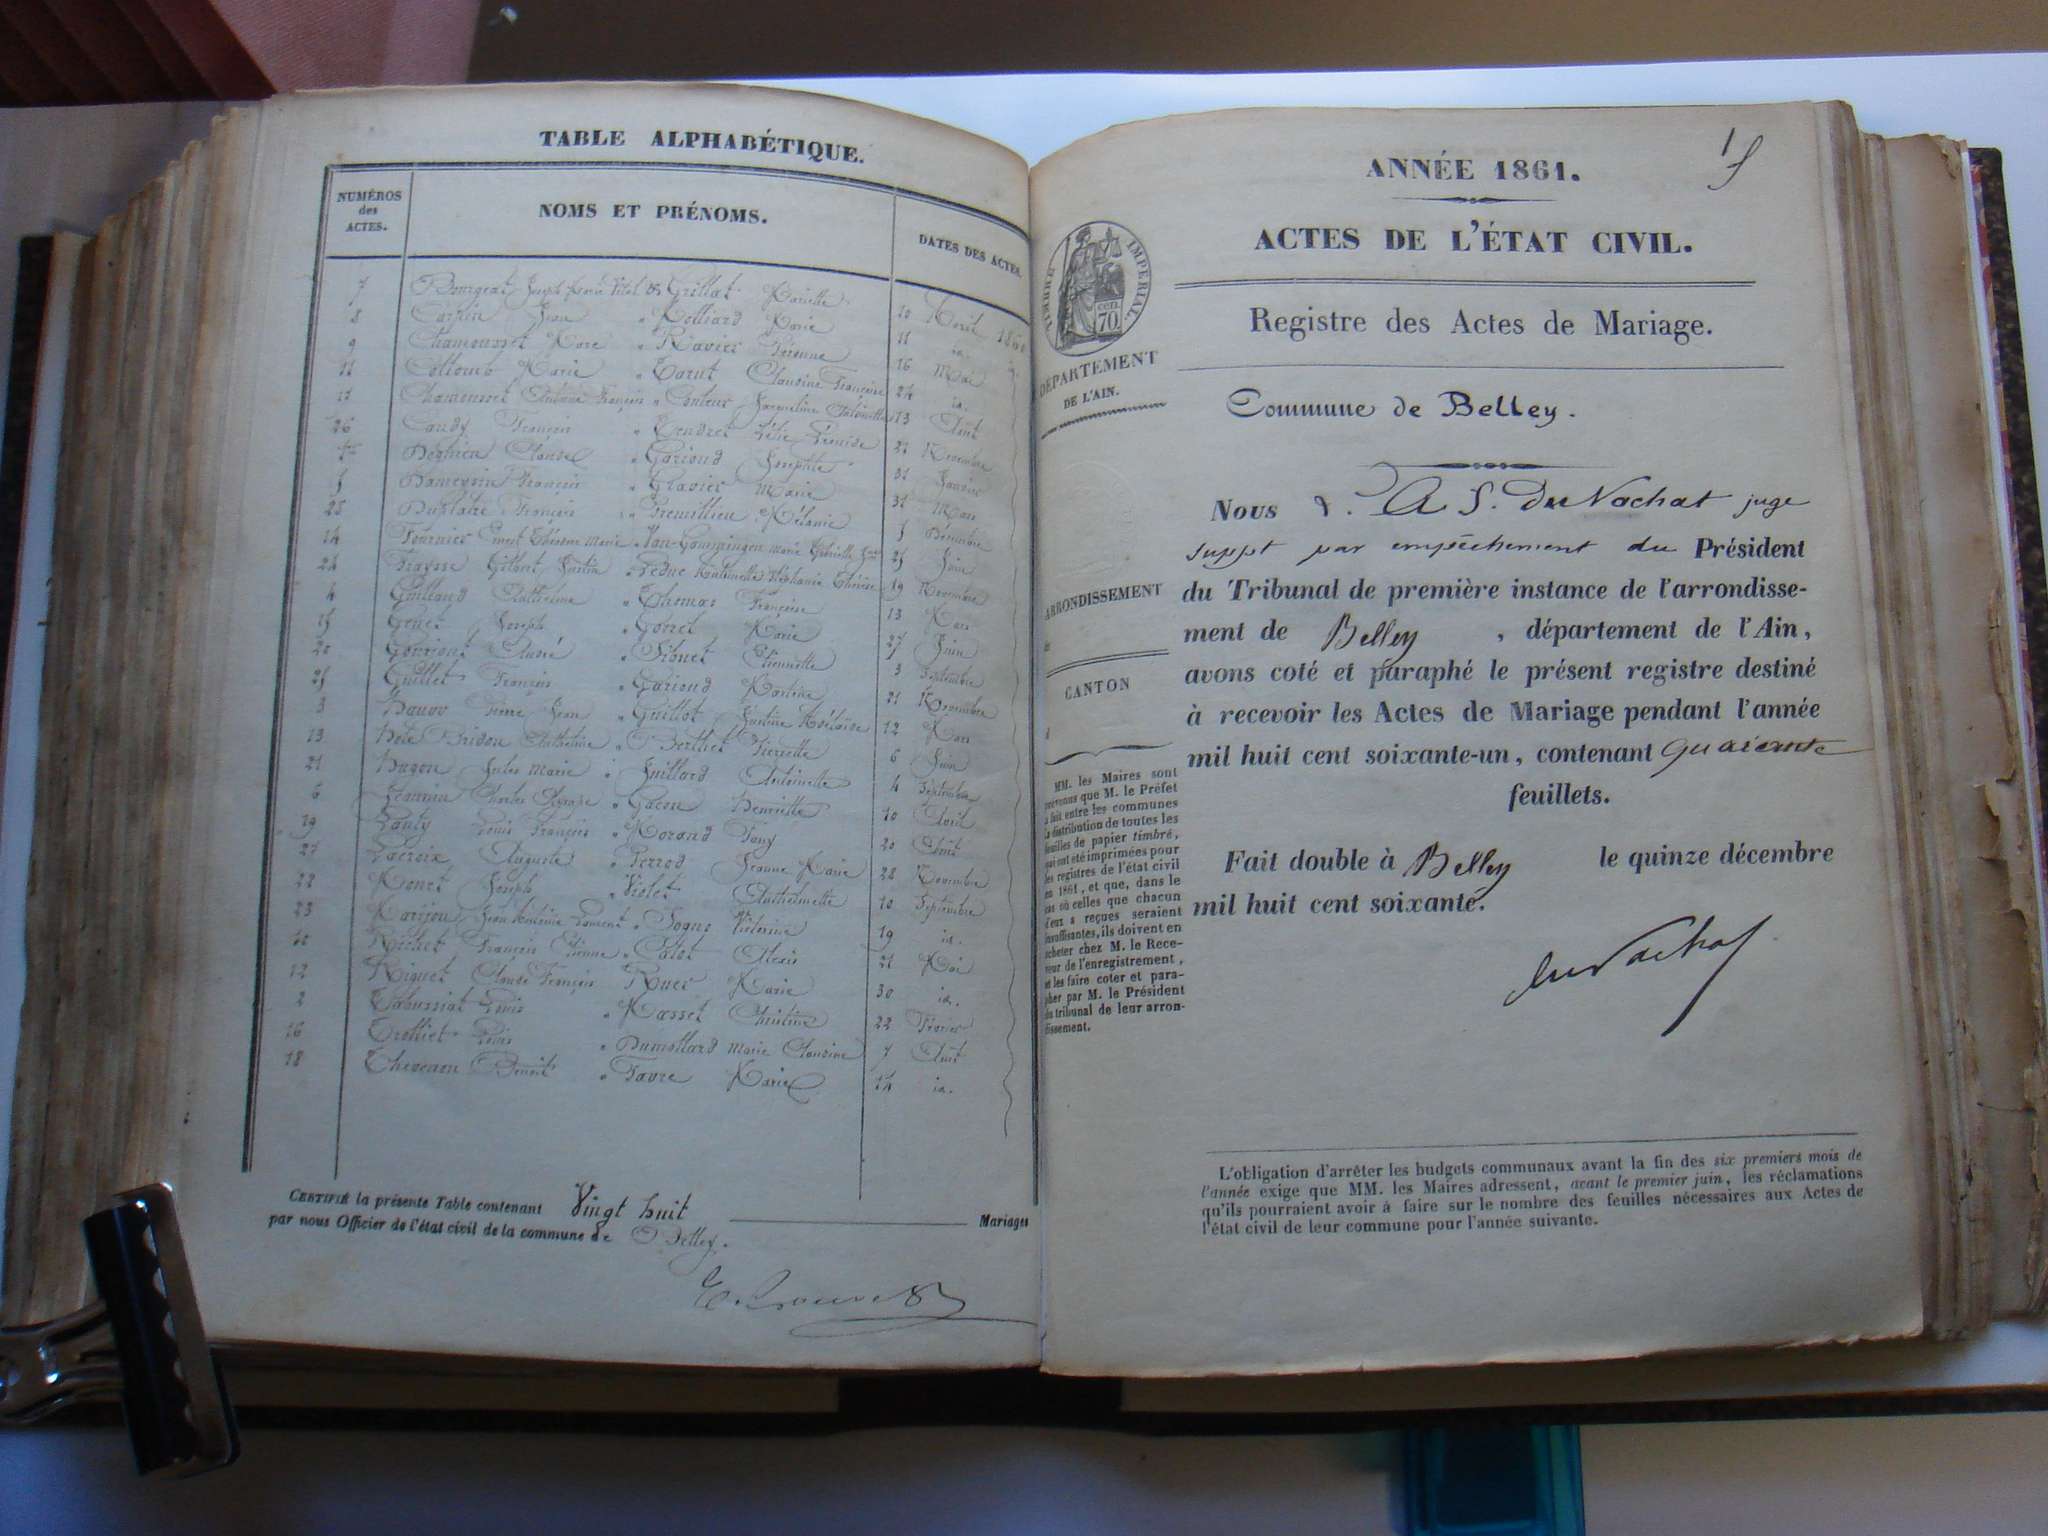 TABLE ALPHABÉTIQUE.
NUMÉROS
des
ACTES.
NOMS ET PRÉNOMS.
DATES DES ACTES.
7 Bourgeat Joseph Marie Vital & Grillat Mariette 10 Avril 1860
8 Jean Rolliard Marie 11 id.
9 Ravier Péronne 16 Mai
11 Collomb Marie Claudine Françoise 24 id.
17 Chamousset Antoine François Jacqueline Antoinette 13 Août
26 François 27 Novembre
Claude Garioud Josephte 31 Janvier
5 Dameysin François Clavier Marie 31 Mars
28 François Mélanie 5 Décembre
14 Fournier Ernest Marie Van-Gumpingen Marie Gabrielle 25 Juin
24 Fraysse Gilbert Justin Leduc Antoinette Stéphanie Thérèse 19 Novembre
4 Guilland Anthelme Thomas Françoise 13 Mars
15 Genet Joseph Gonet Marie 27 Juin
20 André Sibuet Etiennette 3 Septembre
25 Guillet François Garioud Martine 21 Novembre
3 Pierre Jean Guillot Justine 12 Mars
13 Anthelme Berthet Pierrette 6 Juin
21 Hugon Jules Marie Juillard Antoinette 4 Septembre
6 Charles Gacon Henriette 10 Avril
19 Louis François Morand Fany 20 Août
27 Lacroix Auguste Perrod Jeanne Marie 28 Novembre
22 Monet Joseph Violet Anthelmette 10 Septembre
23 Marijou Jean Antoine Victorine 19 id.
10 Richet François Etienne Catot 21 Mai
12 Riguet Claude François Marie 30 id.
2 Louis Masset 22 Février
16 Trolliet Louis Dumollard Marie Claudine 7 Août
18 Thevenon Benoit Favre Marie 14 id.
CERTIFIÉ la présente Table contenant Vingt huit Mariages
par nous Officier de l'état civil de la commune de Belley.
ANNÉE 1861.
ACTES DE L'ÉTAT CIVIL.
TIMBRE IMPÉRIAL
cen.
70
Registre des Actes de Mariage.
DÉPARTEMENT
DE L'AIN.
Commune de Belley.
Nous A S. DuNachat juge
suppt par empêchement du Président
du Tribunal de première instance de l'arrondisse-
ment de Belley, département de l'Ain,
avons coté et paraphé le présent registre destiné
à recevoir les Actes de Mariage pendant l'année
mil huit cent soixante-un, contenant quarante
feuillets.
Fait double à Belley le quinze décembre
mil huit cent soixante.
duNachat
ARRONDISSEMENT
CANTON
MM. les Maires sont
prévenus que M. le Préfet
a fait entre les communes
la distribution de toutes les
feuilles de papier timbré,
qui ont été imprimées pour
les registres de l'état civil
en 1861, et que, dans le
cas où celles que chacun
d'eux a reçues seraient
insuffisantes, ils doivent en
acheter chez M. le Rece-
veur de l'enregistrement,
et les faire coter et para-
pher par M. le Président
du tribunal de leur arron-
dissement.
L'obligation d'arrêter les budgets communaux avant la fin des six premiers mois de
l'année exige que MM. les Maires adressent, avant le premier juin, les réclamations
qu'ils pourraient avoir à faire sur le nombre des feuilles nécessaires aux Actes de
l'état civil de leur commune pour l'année suivante.